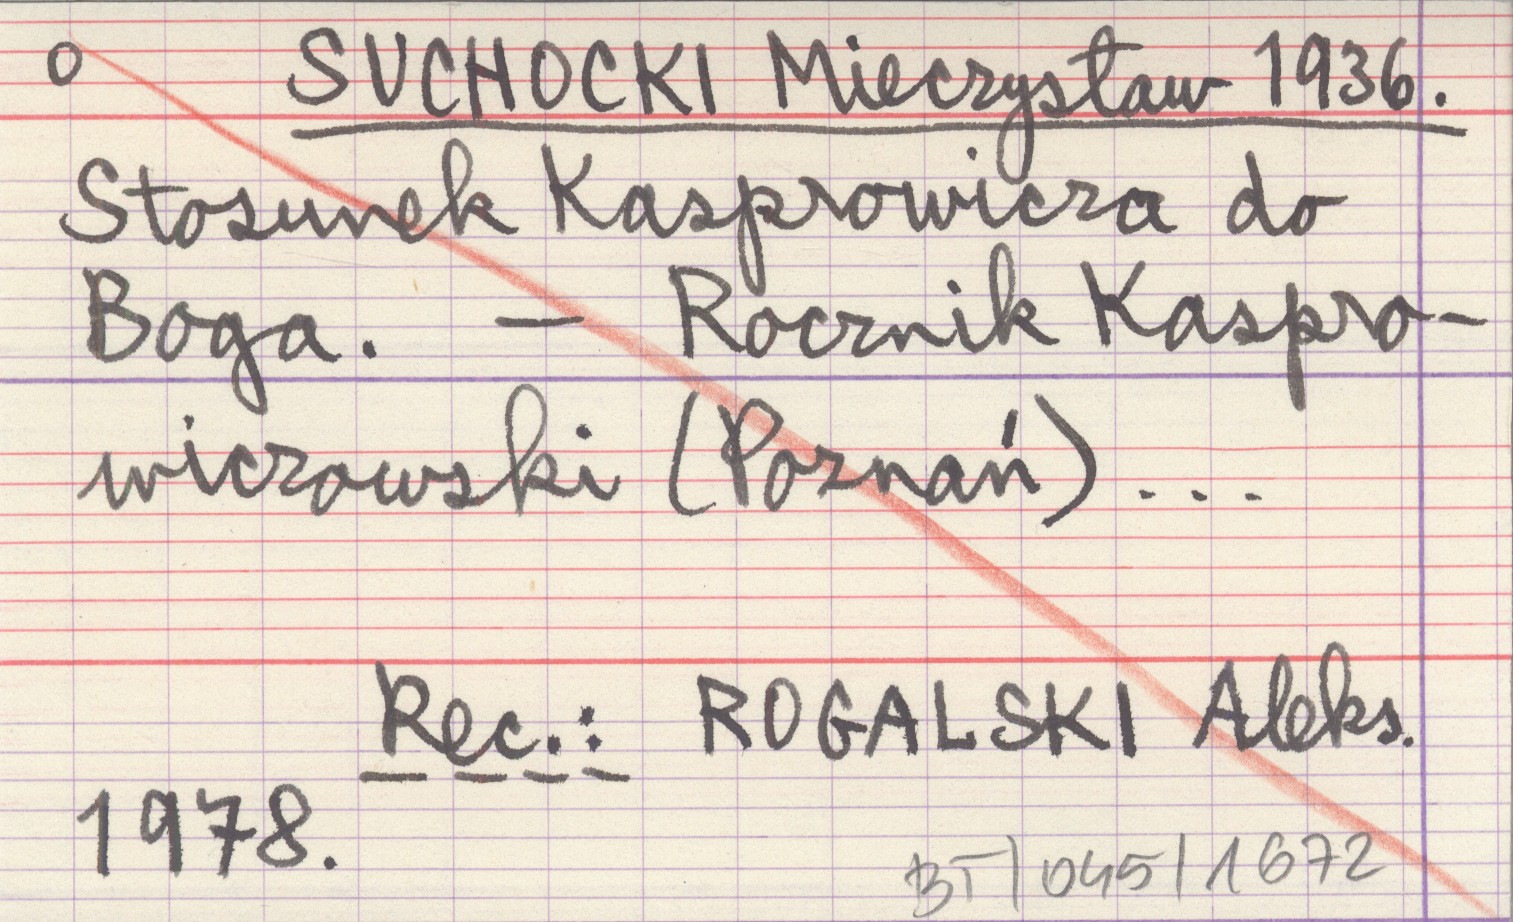 o SUCHOCKI Mieczysław 1936.
Stosunek Kasprowicza do
Boga. — Rocznik Kaspro-
wiczowski (Poznań) ...
Rec.: ROGALSKI Aleks.
1978.
BT/045/1672